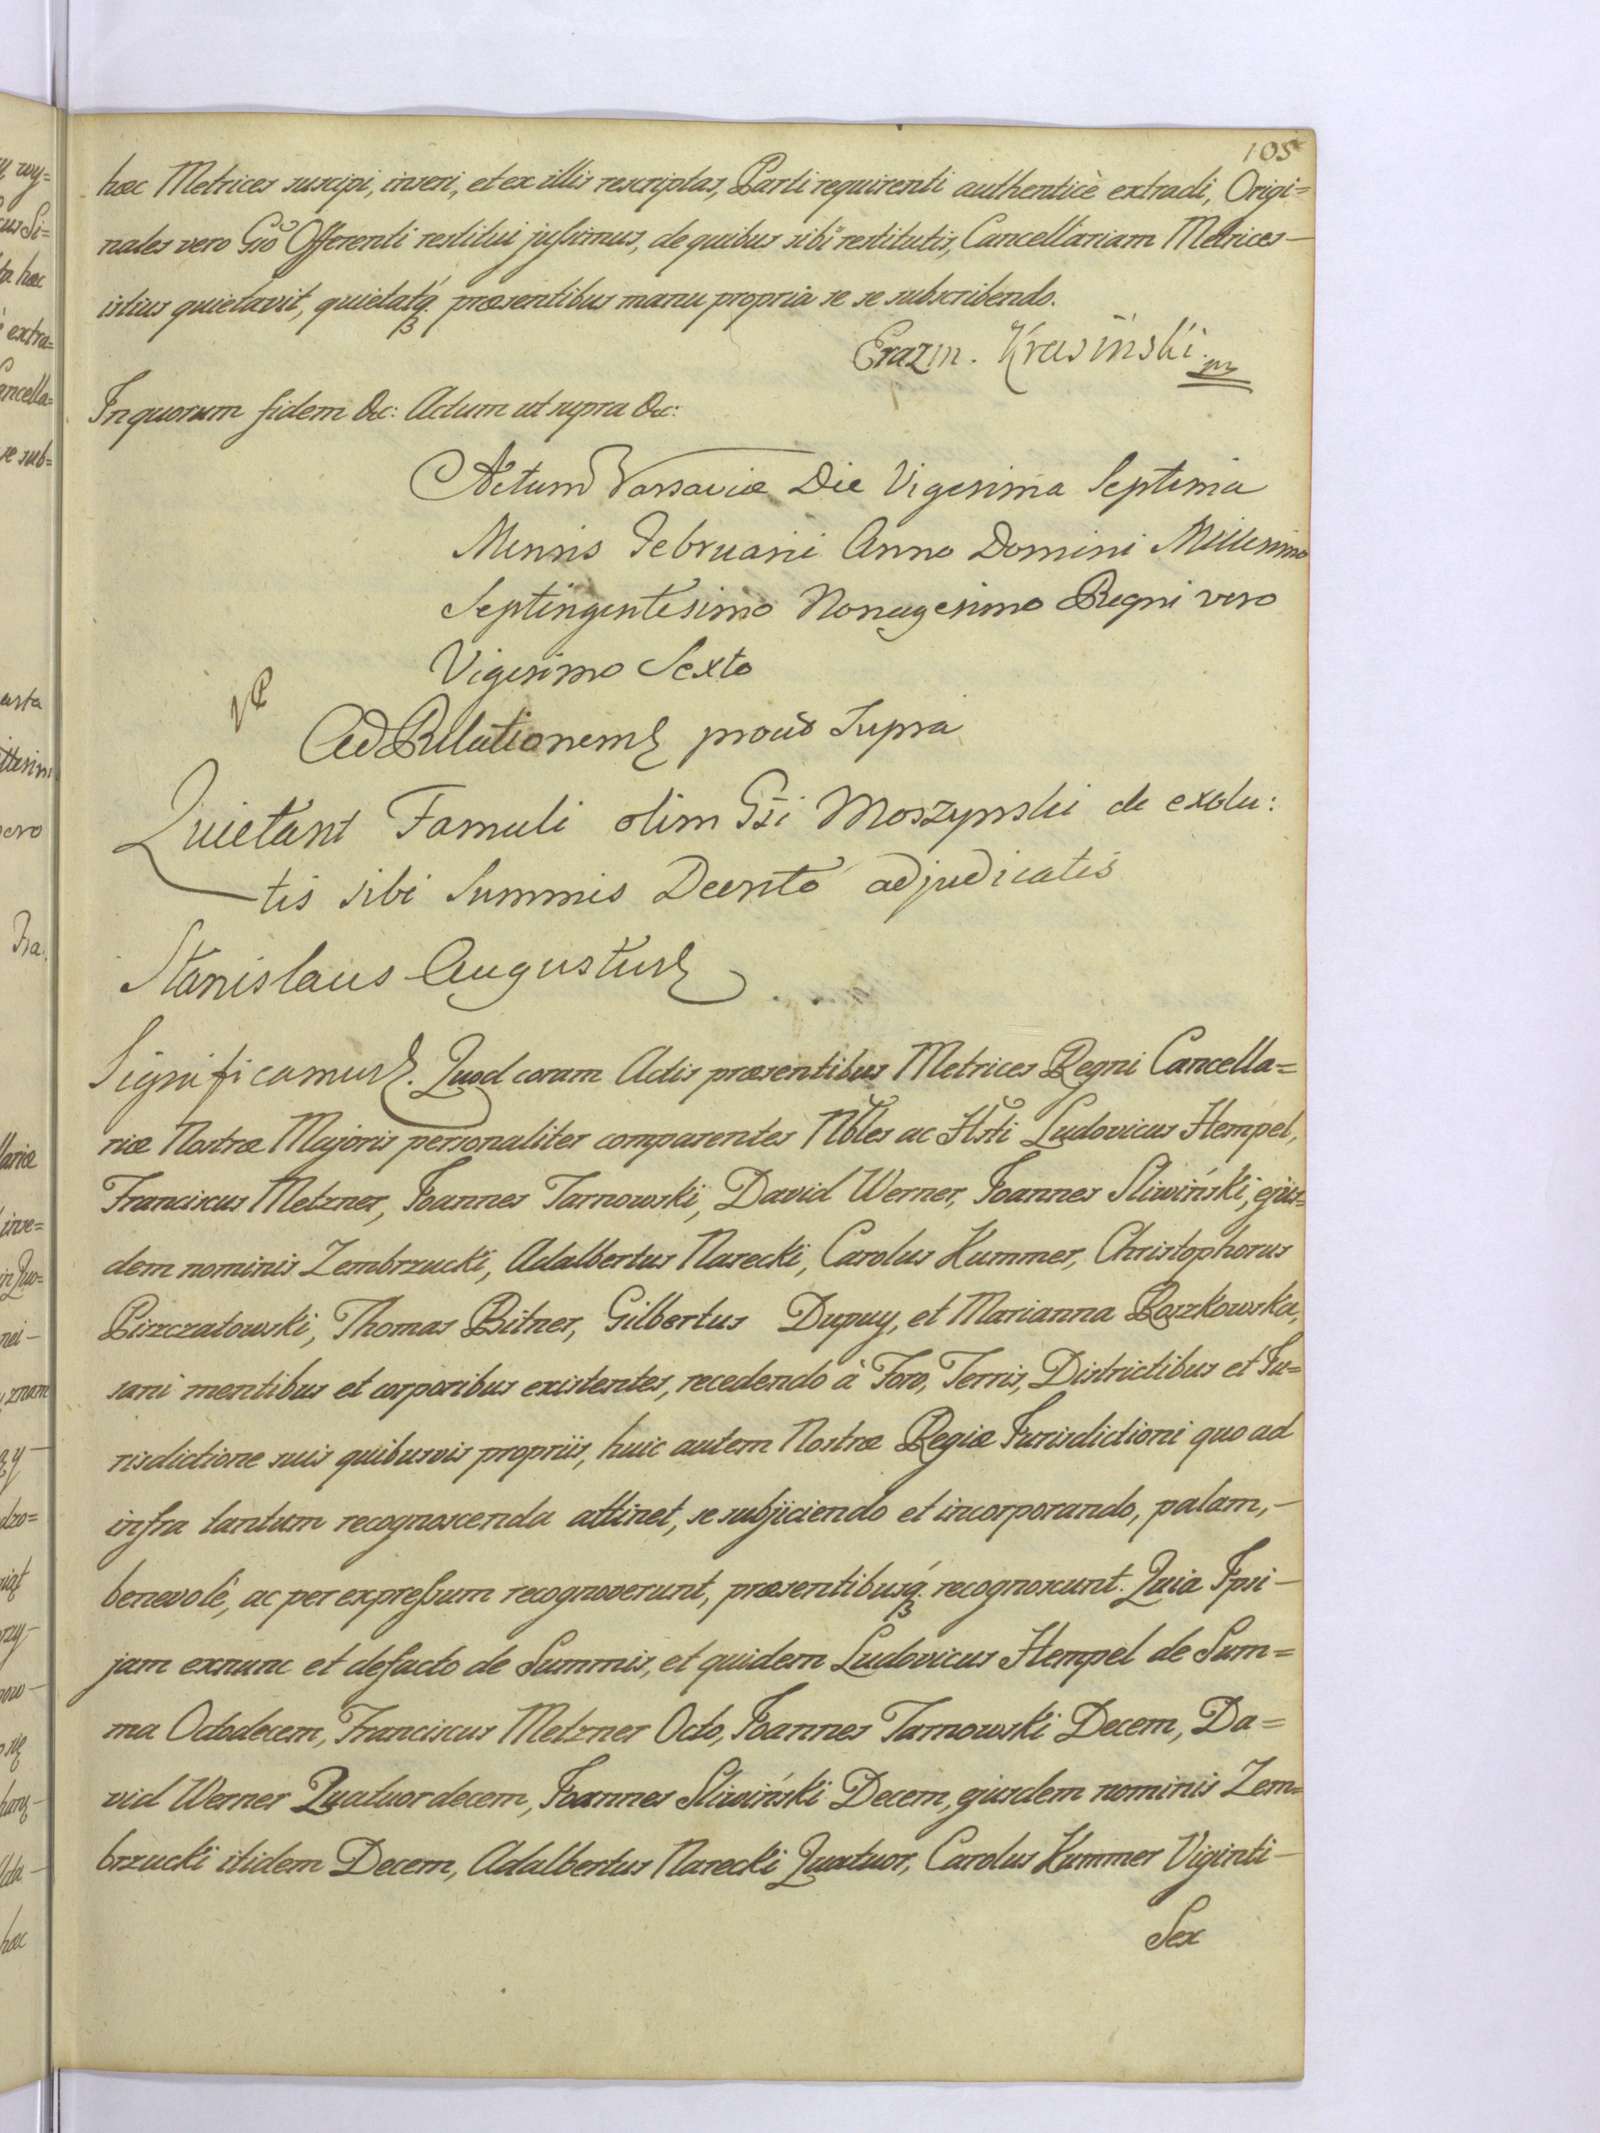 105
hæc Metrices suscipi, inseri, et ex illis rescriptas, Parti requirenti authenticè extradi, Origi=
nales vero Gso Offerenti restitui jussimus, de quibus sibi restitutis, Cancellariam Metrices
istius quietavit, quietatq. præsentibus manu propria se se subscribendo.
Erazm. Krasiński mp
In quorum fidem &c: Actum ut supra &c:
Actum Varsaviæ Die Vigesima Septima
Mensis Februarii Anno Domini Millesimo
Septingentesimo Nonagesimo Regni vero
Vigesimo Sexto
Ad Relationem prout Supra
Quietant Famuli olim Gsi Moszynski de exolu:
tis sibi Summis Decreto adjudicatis
Stanislaus Augustus
Significamus. Quod coram Actis præsentibus Metrices Regni Cancella=
riæ Nostræ Majoris personaliter comparentes Nbles ac Hsti Ludovicus Hempel,
Franciscus Metzner, Joannes Tarnowski, David Werner, Joannes Sliwiński, ejus=
dem nominis Zembrzucki, Adalbertus Narecki, Carolus Kummer, Christophorus
Piszczatowski, Thomas Bitner, Gilbertus Dupuy, et Marianna Roszkowska,
sani mentibus et corporibus existentes, recedendo à Foro, Terris, Districtibus et Ju=
risdictione suis quibusvis propriis, huic autem Nostræ Regiæ Jurisdictioni quo ad
infra tantum recognoscenda attinet, se subjiciendo et incorporando, palam,
benevolè, ac per expressum recognoverunt, præsentibusq. recognoscunt. Quia Ipsi
jam exnunc et defacto de Summis, et quidem Ludovicus Hempel de Sum=
ma Octodecem, Franciscus Metzner Octo, Joannes Tarnowski Decem, Da=
vid Werner Quatuordecem, Joannes Sliwiński Decem, ejusdem nominis Zem=
brzucki itidem Decem, Adalbertus Narecki Quatuor, Carolus Kummer Viginti
Sex